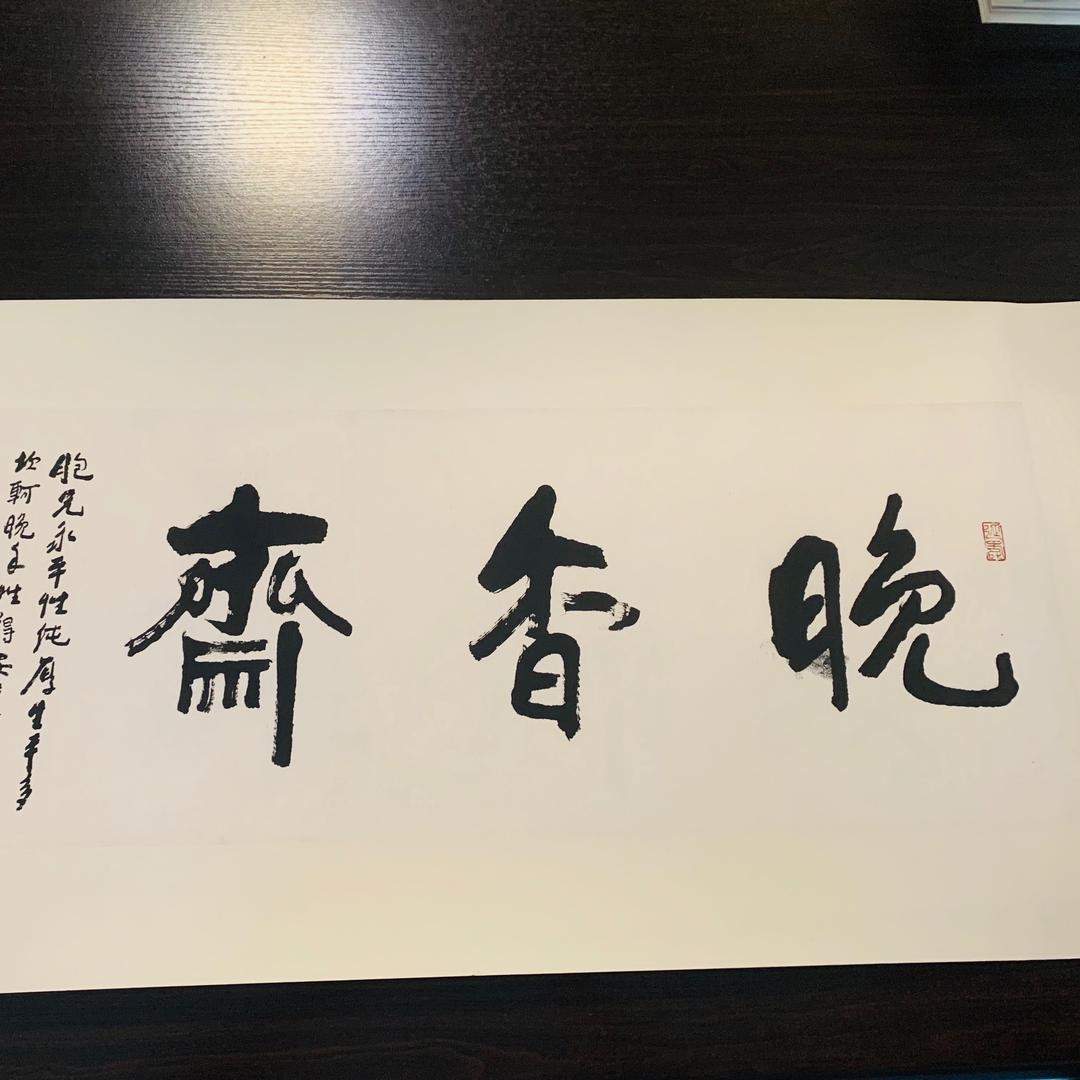 晚香齋
胞兄永平性純厚生平多
坎軻晚年性得